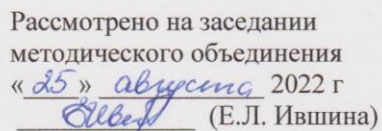 Рассмотрено на заседании
методического объединения
«25» августа 2022 г
(Е.Л. Ившина)